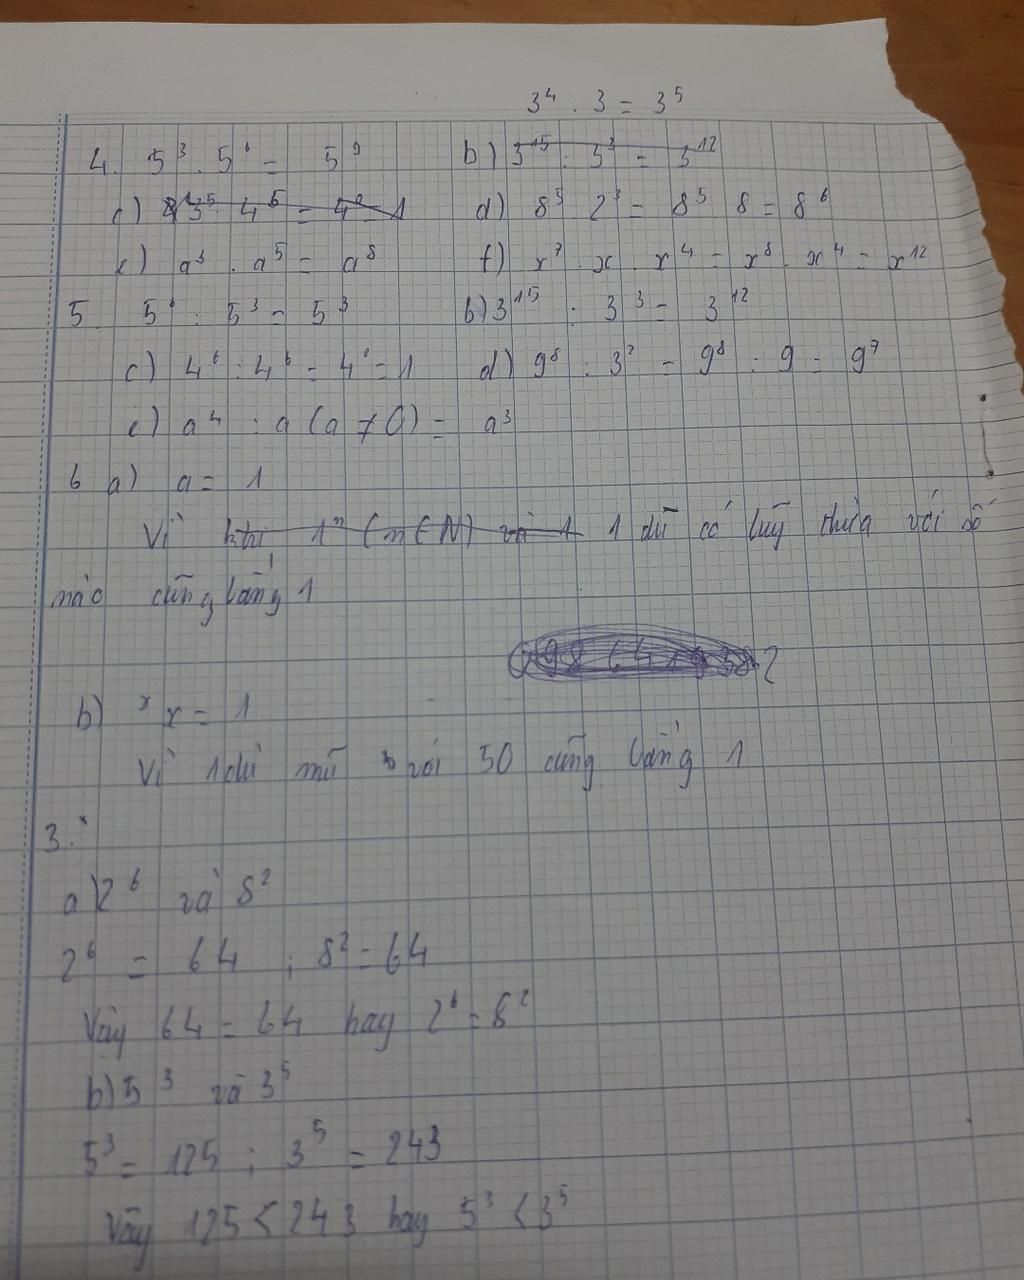 3⁴ . 3 = 3⁵
4. 5³ . 5⁶ = 5⁹ b) 3¹⁵ : 3³ = 3¹²
c) 4⁶ = 4⁰ 1 d) 8⁵ 2³ = 8⁵ 8 = 8⁶
e) a³ . a⁵ = a⁸ f) x⁷ . x . x⁴ = x⁸ . x⁴ = x¹²
5. 5⁶ : 5³ = 5³ b) 3¹⁵ : 3³ = 3¹²
c) 4⁶ : 4⁶ = 4⁰ = 1 d) 9⁸ : 3² = 9⁸ : 9 = 9⁷
e) a⁴ : a (a ≠ 0) = a³
6 a) a = 1
Vì khi 1ⁿ (n ∈ N) và 1 1 dù có luỹ thừa với số
nào cũng bằng 1
b) x = 1
Vì 1 dù mũ với 50 cũng bằng 1
3.
a) 2⁶ và 8²
2⁶ = 64 ; 8² = 64
Vậy 64 = 64 hay 2⁶ = 8²
b) 5³ và 3⁵
5³ = 125 ; 3⁵ = 243
Vậy 125 < 243 hay 5³ < 3⁵